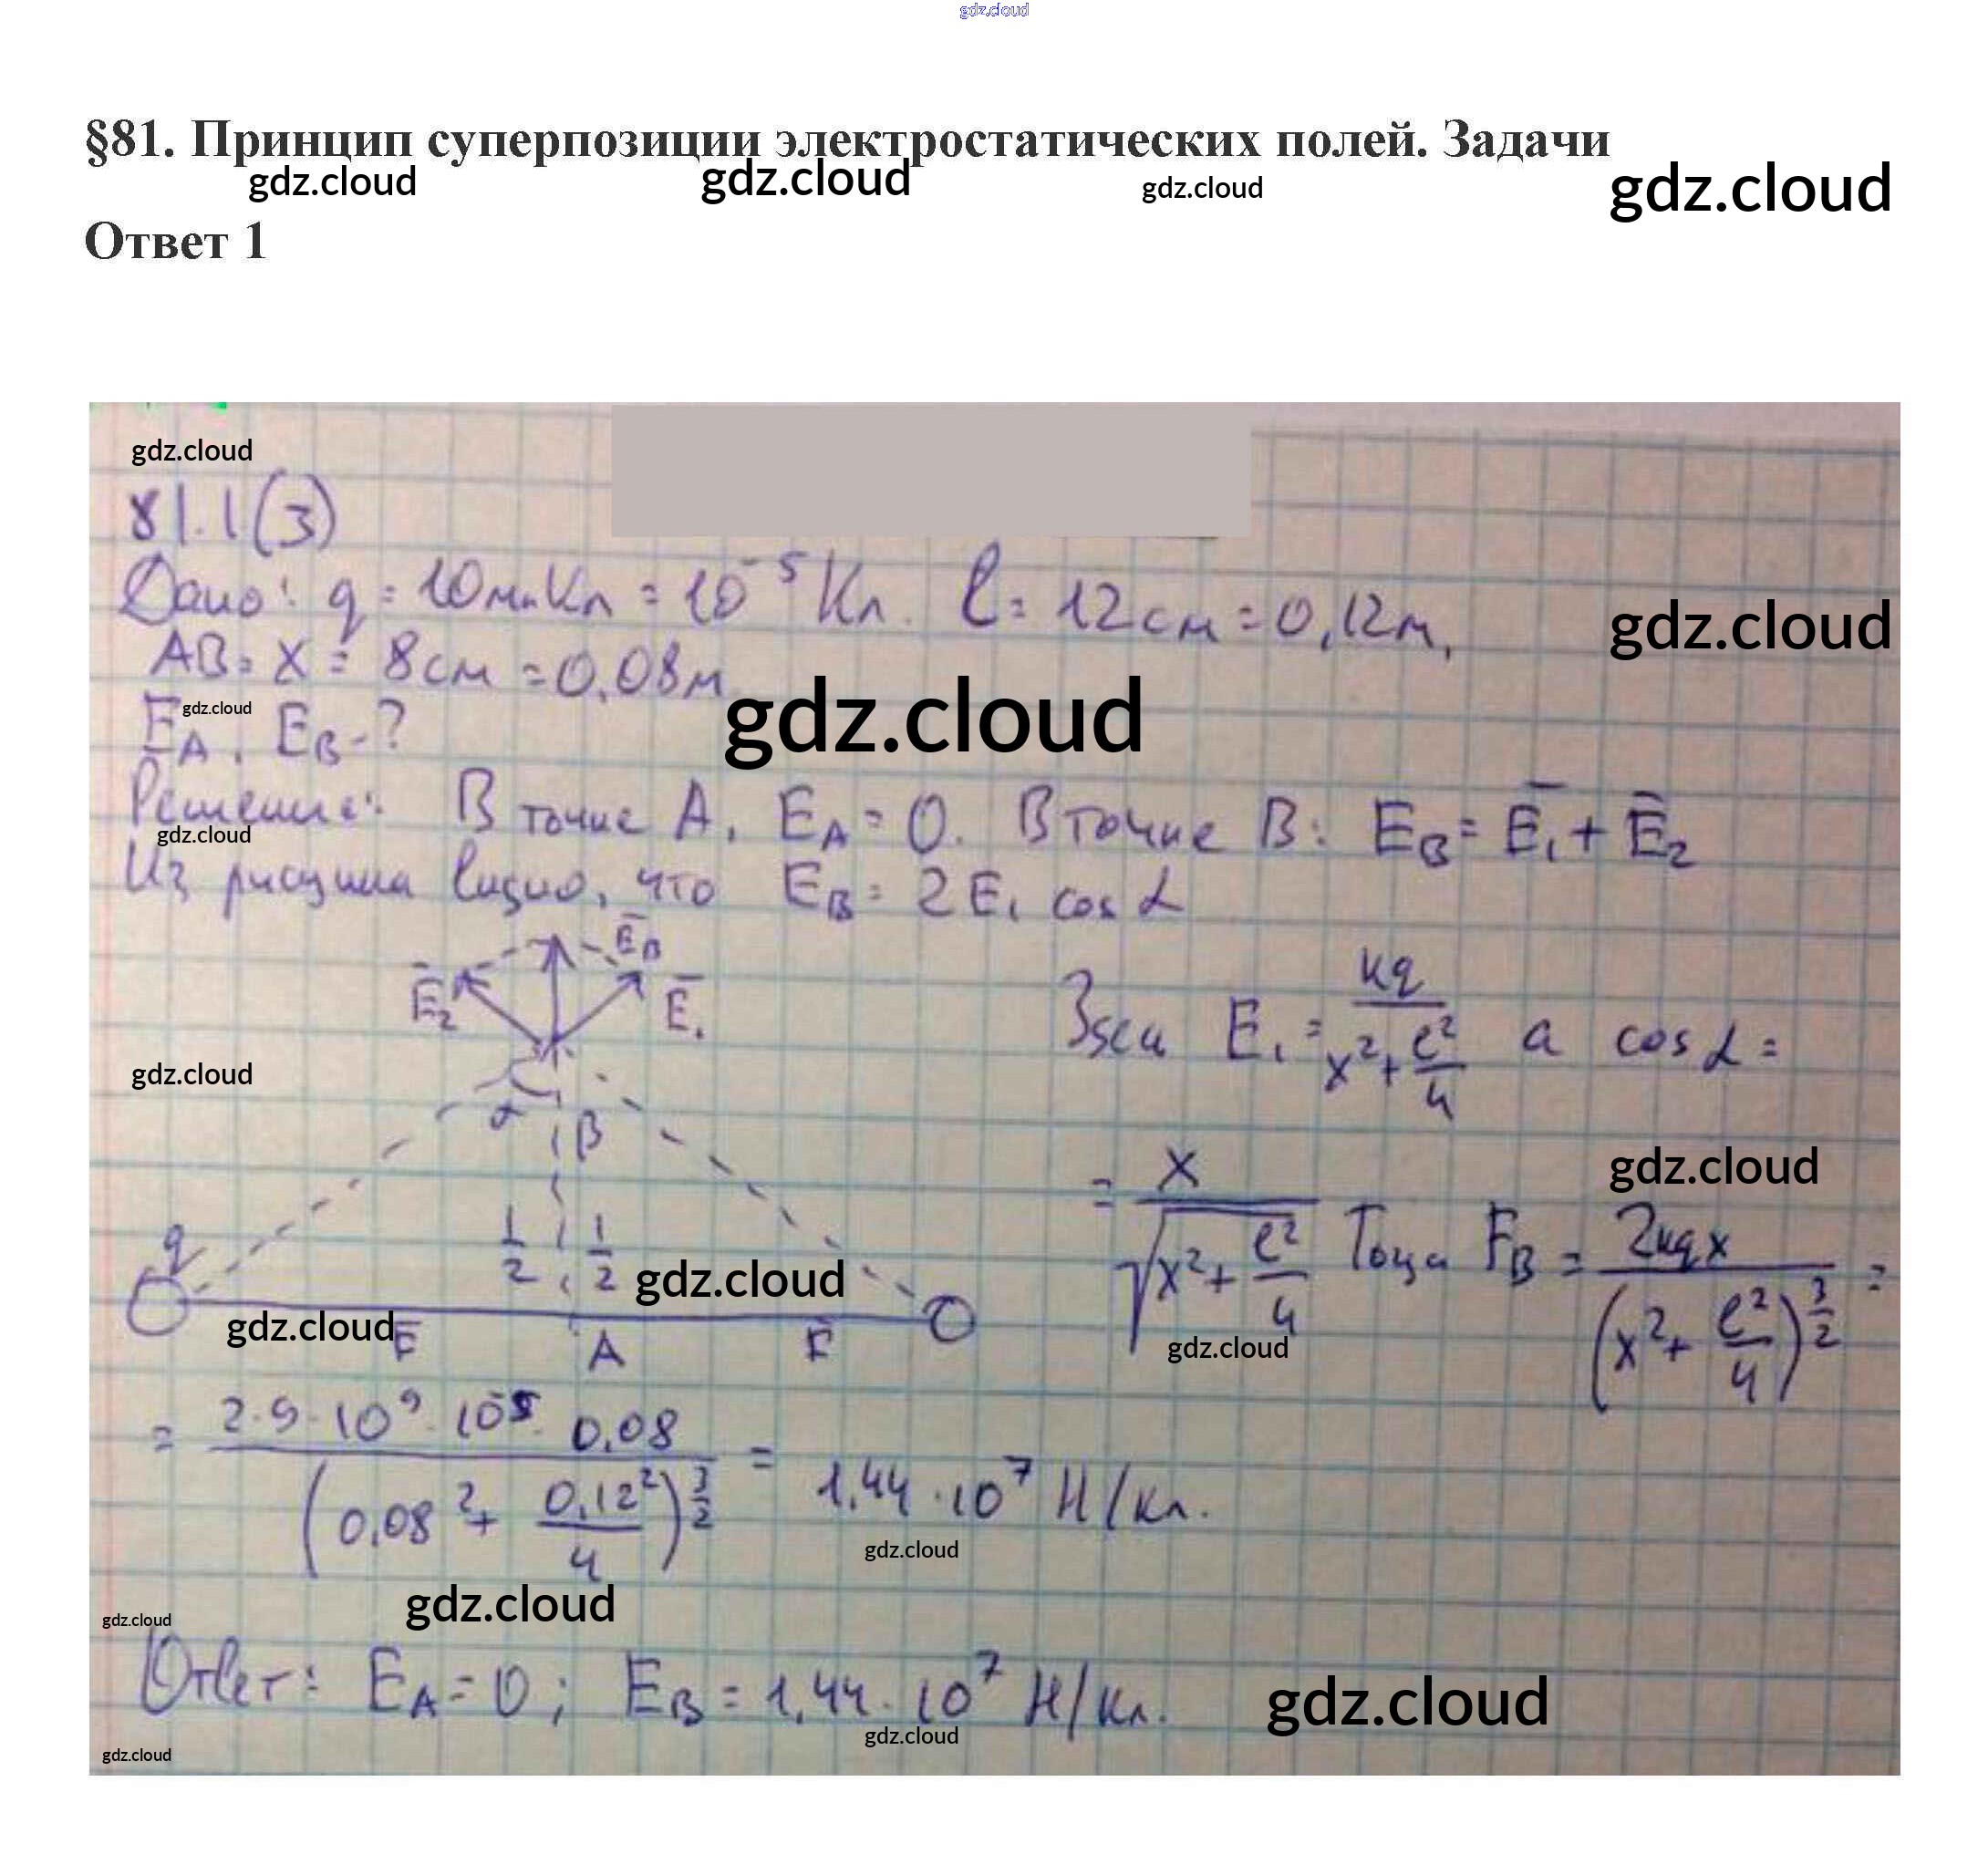 gdz.cloud
§81. Принцип суперпозиции электростатических полей. Задачи
gdz.cloud gdz.cloud gdz.cloud gdz.cloud
Ответ 1
gdz.cloud
81.1(3)
Дано: q = 10мкКл = 10⁻⁵ Кл. l = 12см = 0,12м,
gdz.cloud
AB = x = 8см = 0,08м
gdz.cloud
E_A, E_B - ?
gdz.cloud
Решение: В точке A, E_A = 0. В точке B: E_B = E̅₁ + E̅₂
gdz.cloud
Из рисунка видно, что E_B = 2E₁ cos α
E̅_B
E̅₂ E̅₁
Здесь E₁ = kq / (x² + l²/4) а cos α =
gdz.cloud
α B
= x / √(x² + l²/4) Тогда E_B = 2kqx / (x² + l²/4)^(3/2) =
gdz.cloud
q
1/2 1/2
gdz.cloud
gdz.cloud
gdz.cloud
E̅ A E̅
= 2·9·10⁹·10⁻⁵·0,08 / (0,08² + 0,12²/4)^(3/2) = 1,44·10⁷ Н/Кл.
gdz.cloud
gdz.cloud
gdz.cloud
Ответ: E_A = 0; E_B = 1,44·10⁷ Н/Кл.
gdz.cloud
gdz.cloud
gdz.cloud